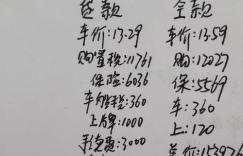 贷款
车价:13.29
购置税:11761
保险:6036
车船税:360
上牌:1000
手续费:3000
全款
车价:13.59
购:12027
保:5569
车:360
上:120
总价:153926